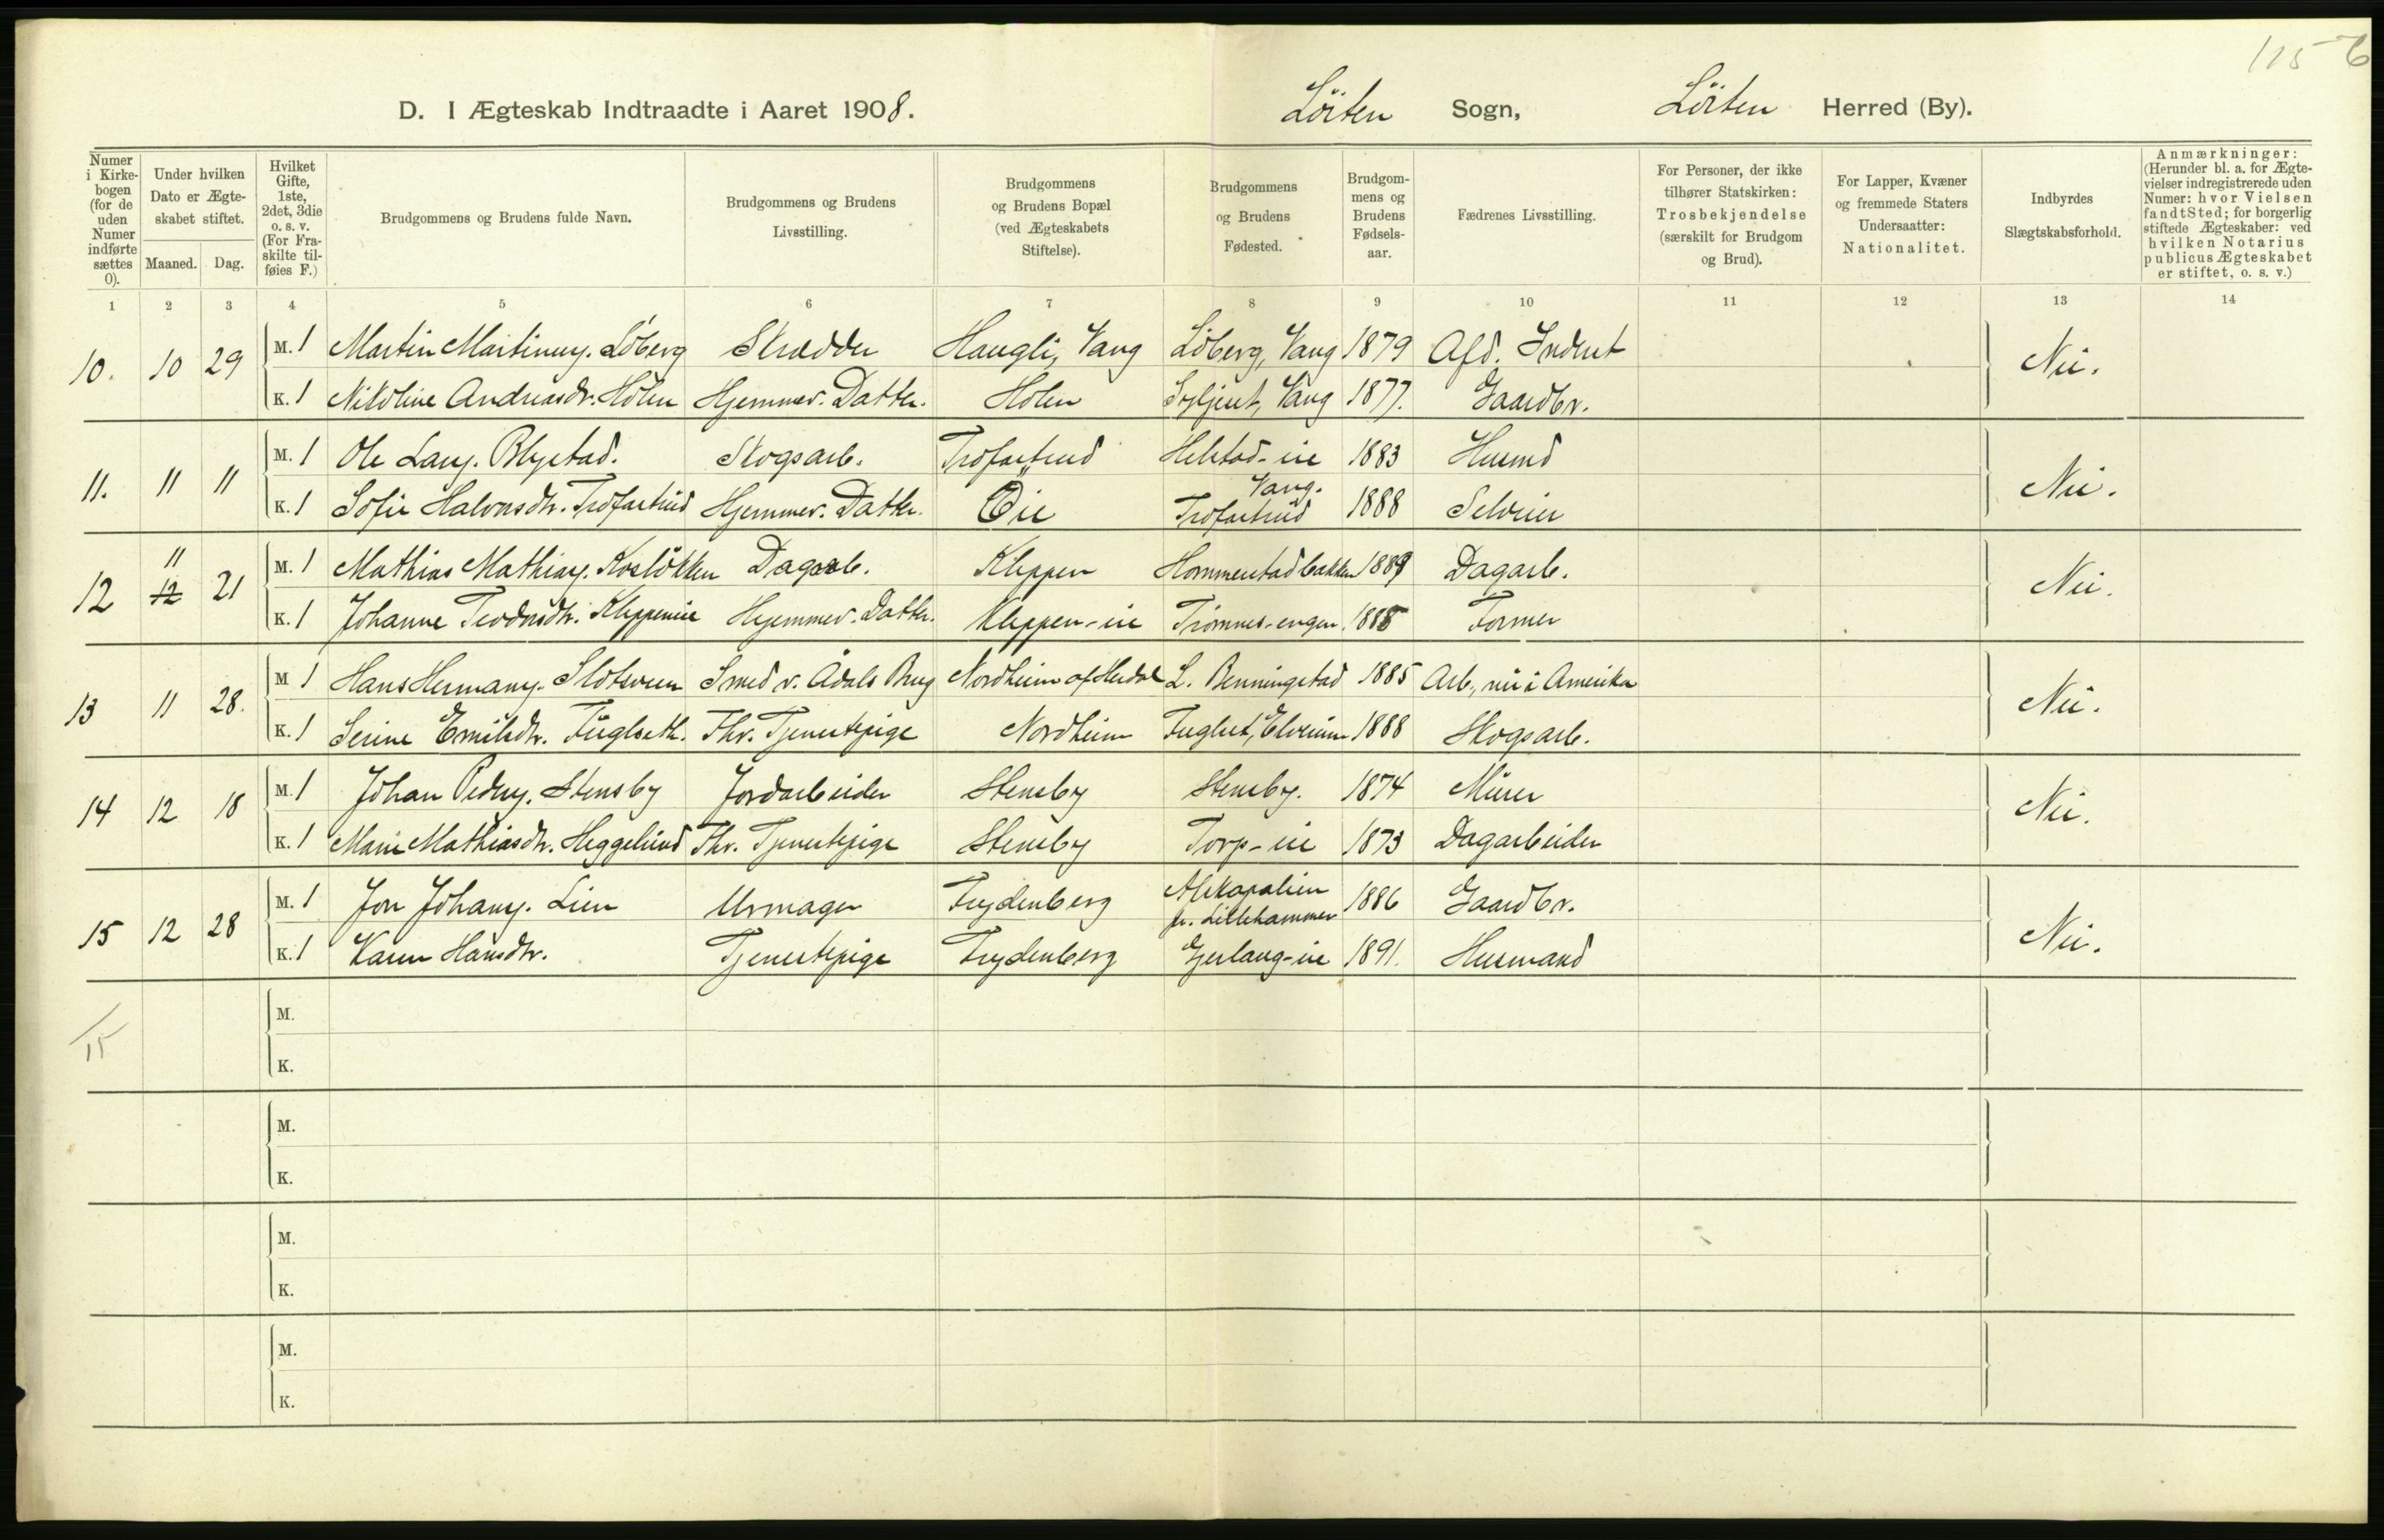 115 6
D. I Ægteskab Indtraadte i Aaret 1908. Löiten Sogn, Löiten Herred (By).
Numer i Kirkebogen (for de uden Numer indførte sættes 0).
Under hvilken Dato er Ægteskabet stiftet.
Maaned. Dag.
Hvilket Gifte, 1ste, 2det, 3die o. s. v. (For Fraskilte tilføies F.)
Brudgommens og Brudens fulde Navn.
Brudgommens og Brudens Livsstilling.
Brudgommens og Brudens Bopæl (ved Ægteskabets Stiftelse).
Brudgommens og Brudens Fødested.
Brudgommens og Brudens Fødselsaar.
Fædrenes Livsstilling.
For Personer, der ikke tilhører Statskirken: Trosbekjendelse (særskilt for Brudgom og Brud).
For Lapper, Kvæner og fremmede Staters Undersaatter: Nationalitet.
Indbyrdes Slægtskabsforhold.
Anmærkninger: (Herunder bl. a. for Ægtevielser indregistrerede uden Numer: hvor Vielsen fandt Sted; for borgerlig stiftede Ægteskaber: ved hvilken Notarius publicus Ægteskabet er stiftet, o. s. v.)
1 2 3 4 5 6 7 8 9 10 11 12 13 14
10. 10 29 M. 1 Martin Martinus. Löberg Skrædder Haugli, Vang Löberg, Vang 1879 Afd. Inderst Nei.
K. 1 Nikoline Andreasdr. Holen Hjemmev. Datter. Holen Vang 1877. Gaardbr.
11. 11 11 M. 1 Ole Lars. Blystad. Skogsarb. Trofastrud Helstad-eie 1883 Husmd Nei.
Vang.
K. 1 Sofie Halvorsdtr. Trofastrud Hjemmev. Datter. Öie Trofastrud 1888 Selveier
11
12 12 21 M. 1 Mathias Mathias. Koslökken Dagarb. Kleppen Hommerstadbakken 1889 Dagarb. Nei.
K. 1 Johanne Teodorsdtr. Kleppeneie Hjemmev. Datter. Kleppen-eie Trömnes-engen 1885 Former
13 11 28. M 1 Hans Hermans. Slotsveen Smed v. Ådals Brug Nordheim af Herdal L. Benningstad 1885 Arb., nu i Amerika Nei.
K. 1 Serine Emilsdtr. Fuglseth. Fhv. Tjenestpige Nordheim Fuglset, Elverum 1888 Skogsarb.
14 12 18 M. 1 Johan Peders. Stensby Jordarbeider Stensby Stensby. 1874 Murer Nei.
K. 1 Marie Mathiasdtr. Heggelund Fhv. Tjenestpige Stensby Torp-eie 1873 Dagarbeider
15 12 28 M. 1 Jon Johans. Lien Urmager Frydenberg 1886 Gaardbr. Nei.
pr. Lillehammer
K. 1 Karen Hansdtr. Tjenestpige Frydenberg Gjerlaug-eie 1891. Husmand
15
M.
K.
M.
K.
M.
K.
M.
K.